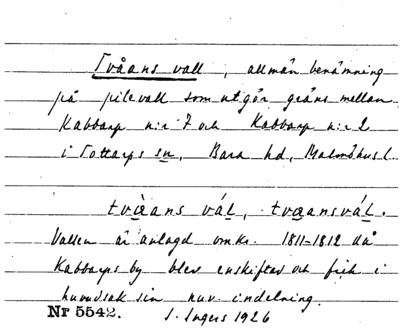 Tvåans vall, allmän benämning
på pilevall som utgör gräns mellan
Kabbarp n:r 7 och Kabbarp n:r 2
i Tottarps sn, Bara hd, Malmöhus l.
tvàans vál, tvaansvál.
Vallen är anlagd omkr. 1811-1812 då
Kabbarps by blev enskiftad och fick i
huvudsak sin nuv. indelning.
Nr 5542. I. Ingers 1926